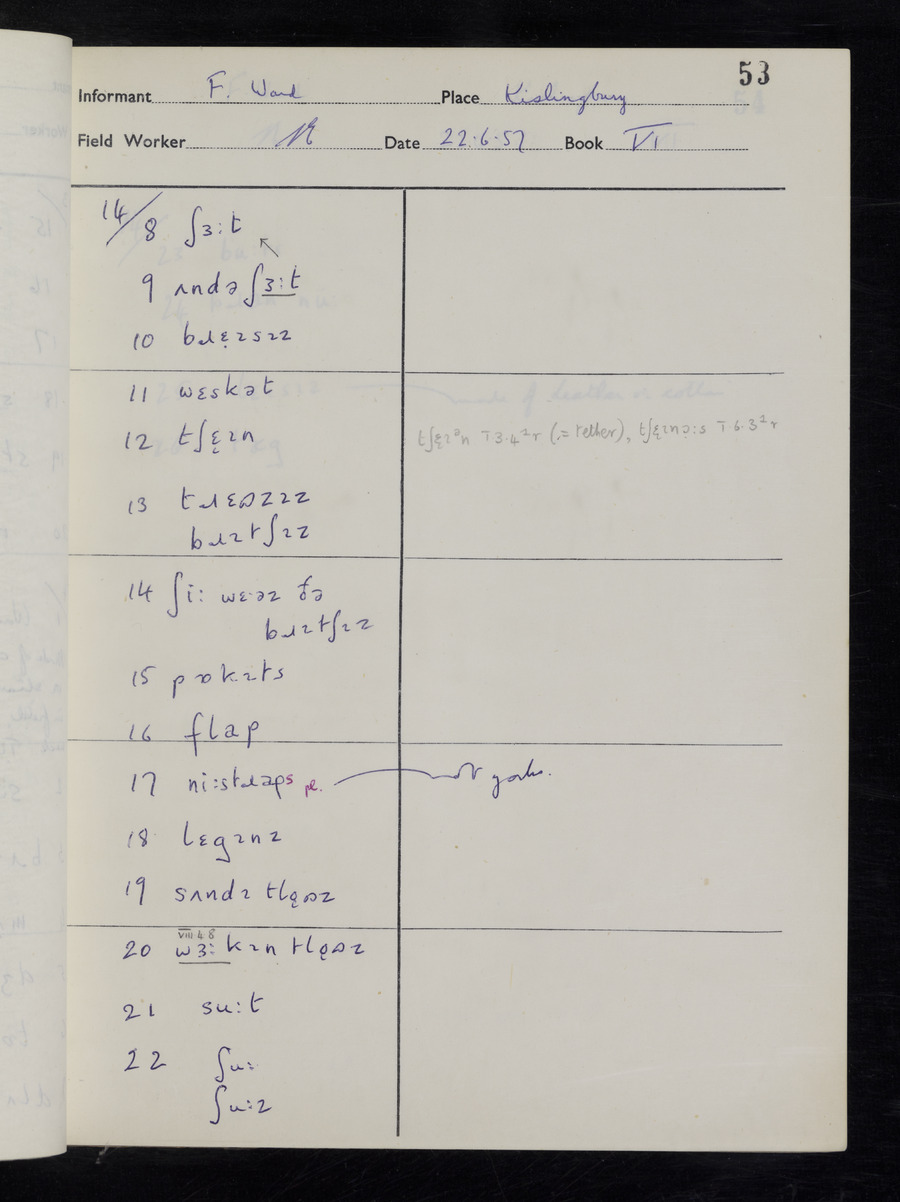 53
Informant F. Ward Place Kislingbury
Field Worker Date 22·6·57 Book VI
14/8 ʃɜːt
9 ʌndə ʃɜːt
10 bɹɛ̣ɪsɪz
11 wɛskət
12 tʃɛ̣ɪn tʃɛ̣ɪᵊn
13 tɹɛʊzɪz
bɹɪtʃɪz
14 ʃiː wɛəz ðə
bɹɪtʃɪz
15 pɒkɪts
16 flap
17 niːstɹaps pl. not yorks.
18 lɛgɪnz
19 sʌndɪ tlɒ̣ʊz
VIII·4·8
20 wɜːkɪn tlɒ̣ʊz
21 suːt
22 ʃuː
ʃuːz